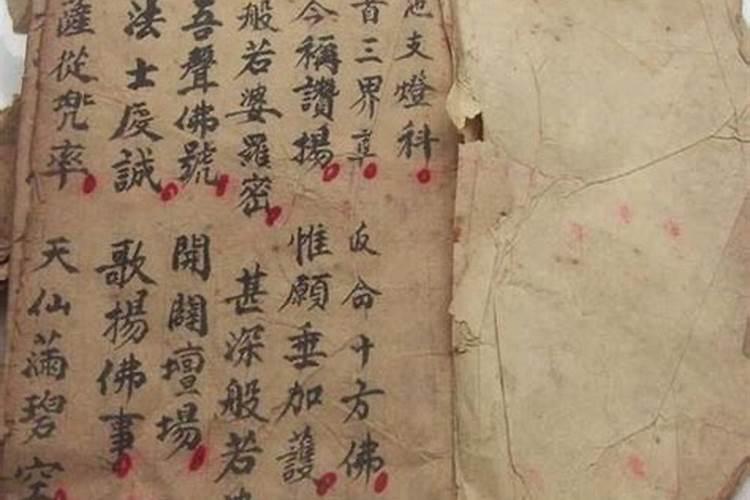 地支燈科
首三界尊 返命十方佛
今稱讚揚 惟願垂加護
般若婆羅密 甚深般若
吾聲佛號 開闢壇場
法士虔誠 歌揚佛事
薩從兜率 天仙滿碧空